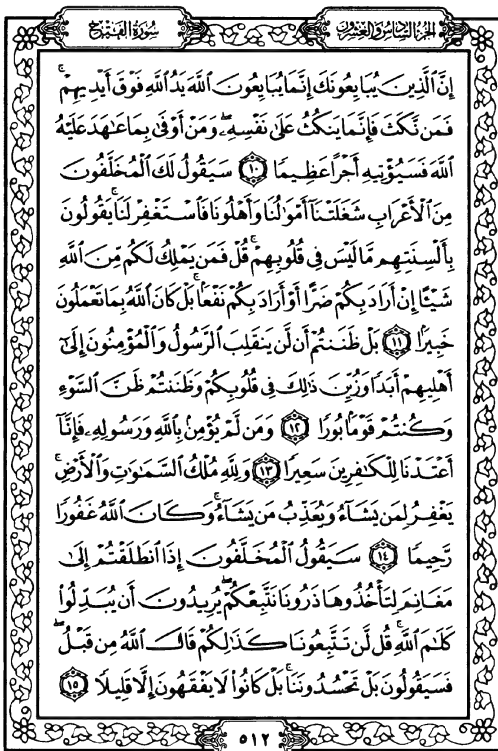 سُورَةُ الفَتْحِ
الجُزْءُ السَّادِسُ وَالعِشْرُونَ
إِنَّ ٱلَّذِينَ يُبَايِعُونَكَ إِنَّمَا يُبَايِعُونَ ٱللَّهَ يَدُ ٱللَّهِ فَوْقَ أَيْدِيهِمْ ۚ
فَمَن نَّكَثَ فَإِنَّمَا يَنكُثُ عَلَىٰ نَفْسِهِۦ ۖ وَمَنْ أَوْفَىٰ بِمَا عَٰهَدَ عَلَيْهُ
ٱللَّهَ فَسَيُؤْتِيهِ أَجْرًا عَظِيمًا ١٠ سَيَقُولُ لَكَ ٱلْمُخَلَّفُونَ
مِنَ ٱلْأَعْرَابِ شَغَلَتْنَآ أَمْوَٰلُنَا وَأَهْلُونَا فَٱسْتَغْفِرْ لَنَا ۚ يَقُولُونَ
بِأَلْسِنَتِهِم مَّا لَيْسَ فِى قُلُوبِهِمْ ۚ قُلْ فَمَن يَمْلِكُ لَكُم مِّنَ ٱللَّهِ
شَيْـًٔا إِنْ أَرَادَ بِكُمْ ضَرًّا أَوْ أَرَادَ بِكُمْ نَفْعًۢا ۚ بَلْ كَانَ ٱللَّهُ بِمَا تَعْمَلُونَ
خَبِيرًۢا ١١ بَلْ ظَنَنتُمْ أَن لَّن يَنقَلِبَ ٱلرَّسُولُ وَٱلْمُؤْمِنُونَ إِلَىٰٓ
أَهْلِيهِمْ أَبَدًا وَزُيِّنَ ذَٰلِكَ فِى قُلُوبِكُمْ وَظَنَنتُمْ ظَنَّ ٱلسَّوْءِ
وَكُنتُمْ قَوْمًۢا بُورًا ١٢ وَمَن لَّمْ يُؤْمِنۢ بِٱللَّهِ وَرَسُولِهِۦ فَإِنَّآ
أَعْتَدْنَا لِلْكَٰفِرِينَ سَعِيرًا ١٣ وَلِلَّهِ مُلْكُ ٱلسَّمَٰوَٰتِ وَٱلْأَرْضِ ۚ
يَغْفِرُ لِمَن يَشَآءُ وَيُعَذِّبُ مَن يَشَآءُ ۚ وَكَانَ ٱللَّهُ غَفُورًا
رَّحِيمًا ١٤ سَيَقُولُ ٱلْمُخَلَّفُونَ إِذَا ٱنطَلَقْتُمْ إِلَىٰ
مَغَانِمَ لِتَأْخُذُوهَا ذَرُونَا نَتَّبِعْكُمْ ۖ يُرِيدُونَ أَن يُبَدِّلُوا۟
كَلَٰمَ ٱللَّهِ ۚ قُل لَّن تَتَّبِعُونَا كَذَٰلِكُمْ قَالَ ٱللَّهُ مِن قَبْلُ ۖ
فَسَيَقُولُونَ بَلْ تَحْسُدُونَنَا ۚ بَلْ كَانُوا۟ لَا يَفْقَهُونَ إِلَّا قَلِيلًا ١٥
٥١٢